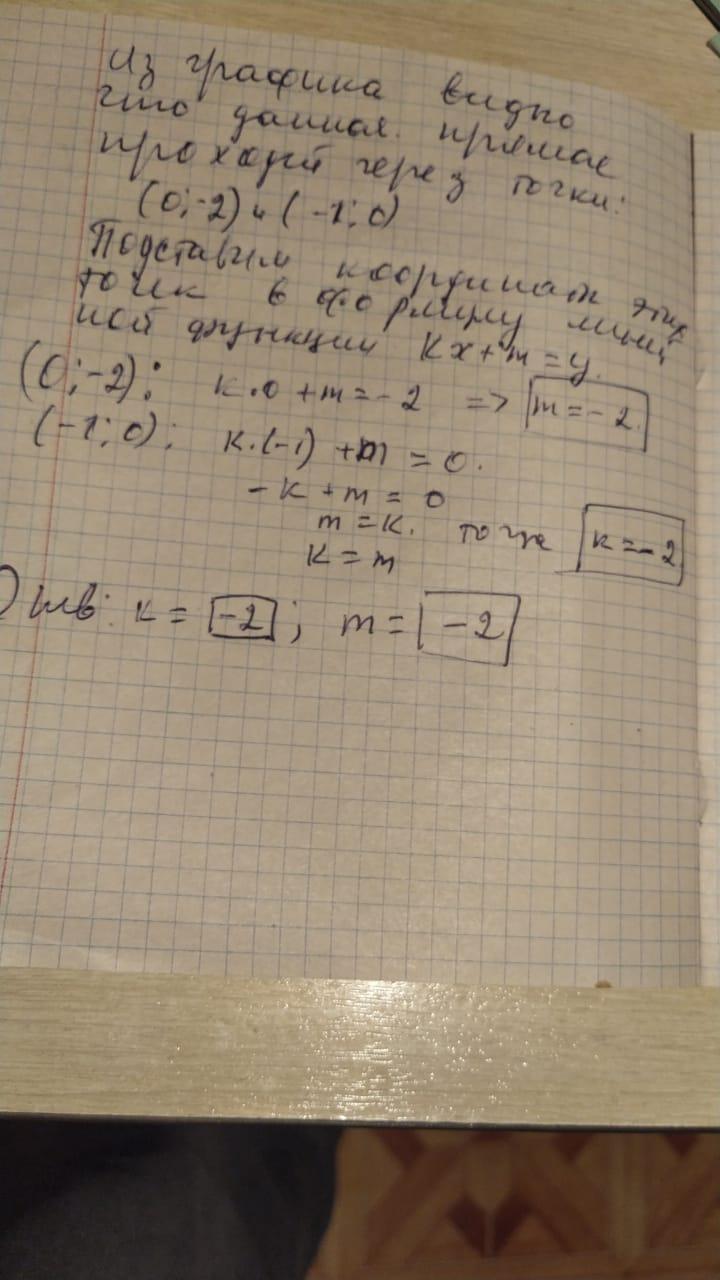 Из графика видно
что данная прямая
проходит через точки:
(0;-2) и (-1;0)
Подставим координаты этих
точек в формулу линей
ной функции кx+m=y.
(0;-2): к·0+m=-2 => m=-2.
(-1;0): к·(-1)+m=0.
-к+m=0
m=к. тогда к=-2
к=m
Ответ: к=-2; m=-2